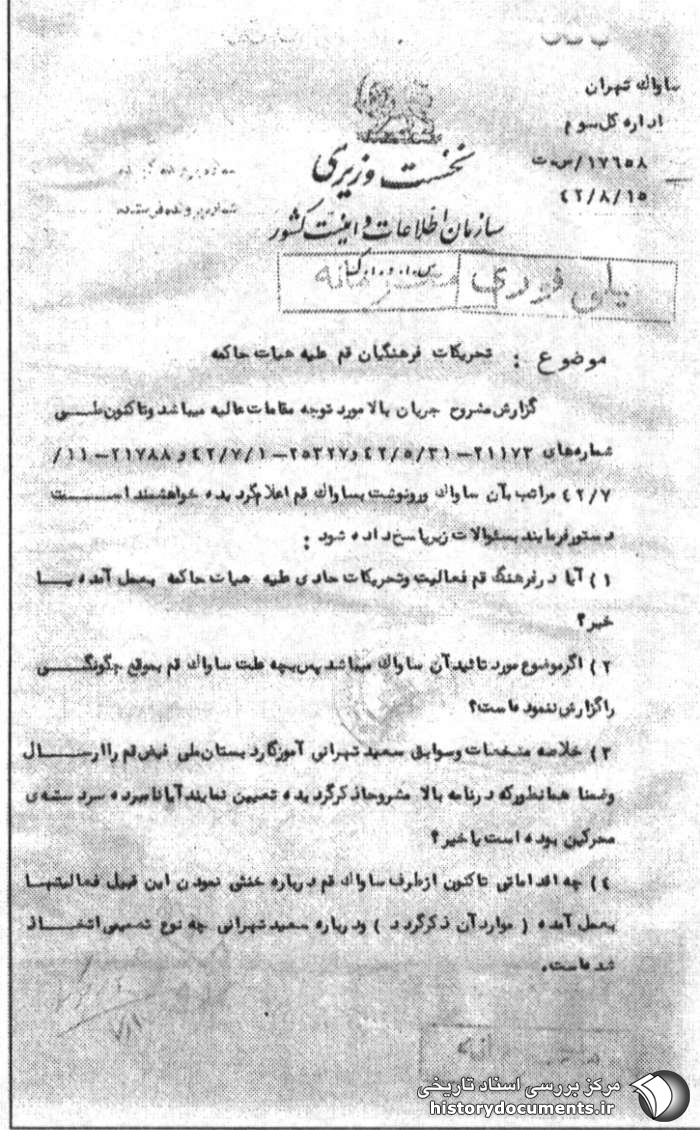 ساواك تهران
اداره كل سوم
۱۷۶۵۸/س ت
۴۲/۸/۱۵
نخست وزیری
سازمان اطلاعات و امنیت کشور
س.ا.و.ا.ک
خیلی فوری محرمانه
موضوع : تحریكات فرهنگیان قم علیه هیات حاكمه
گزارش مشروح جریان بالا مورد توجه مقامات عالیه میباشد و تاكنون طــی
شماره‌های ۲۱۱۷۳-۴۲/۵/۳۱ و ۲۵۳۲۷-۴۲/۷/۱ و ۲۱۷۸۸-۱۱/
۴۲/۷ مراتب بآن ساواك و رونوشت بساواك قم اعلام گردیده خواهشمند اســت
دستور فرمایند بسئوالات زیر پاسخ داده شود :
۱) آیا در فرهنگ قم فعالیت و تحریكات حادی علیه هیات حاكمه بعمل آمده یــا
خیر؟
۲) اگر موضوع مورد تائید آن ساواك میباشد پس بچه علت ساواك قم بموقع چگونگــی
را گزارش ننموده است؟
۳) خلاصه مشخصات و سوابق سعید تهرانی آموزگار دبستان ملی فیض قم را ارســال
وضمنا همانطوركه در نامه بالا مشروحا ذكر گردیده تعیین نمایند آیا نامبرده سردسته‌ی
محركین بوده است یا خیر؟
۴) چه اقداماتی تاكنون از طرف ساواك قم درباره خنثی نمودن این قبیل فعالیتهــا
بعمل آمده ( موارد آن ذكر گردد ) و درباره سعید تهرانی چه نوع تصمیمی اتخــاذ
شده است.
مركز بررسی اسناد تاریخی
historydocuments.ir